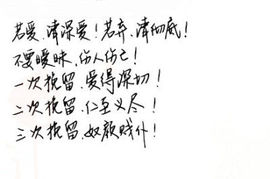 若爱，请深爱！若弃，请彻底！
不要暧昧，伤人伤己！
一次挽留，爱得深切！
二次挽留，仁至义尽！
三次挽留，奴颜贱仆！